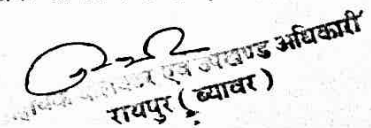 एवं उपखण्ड अधिकारी
रायपुर ( ब्यावर )